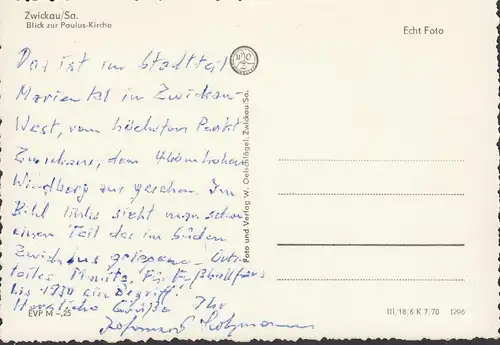 Zwickau/Sa.
Blick zur Paulus-Kirche
Echt Foto
Das ist im Stadtteil
Mariental in Zwickau-
West, vom höchsten Punkt
Zwickaus, dem hohen
Windberg aus gesehen. Im
Bild links sieht man schon
einen Teil des im Süden
Zwickaus gelegene Orts-
teiles Planitz. Für Fußballfans
bis 1950 ein Begriff!
Herzliche Grüße Ihr
Johannes
Foto und Verlag W. Oelschlägel, Zwickau/Sa.
EVP M -,25
III/18/6 K 7/70 1296